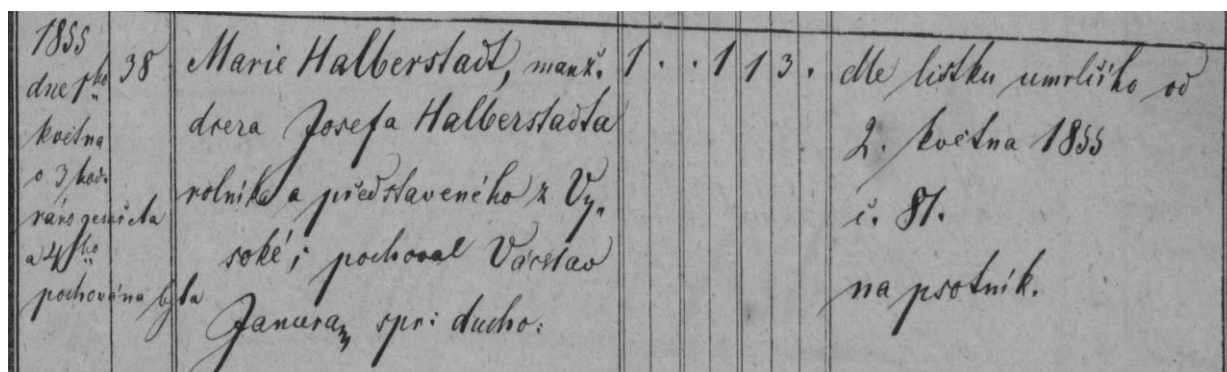 1855
dne 1ho
května
o 3 hod.
ráno zemřela
a 4ho
pochována byla
38
Marie Halberstadt, manž.
dcera Josefa Halberstadta
rolníka a představeného z Vy„
soké; pochoval Václav
Janura, spri: ducho:
1 . . 1 1 3 .
dle lístku umrlčího od
2. května 1855
č. 81.
na psotník.